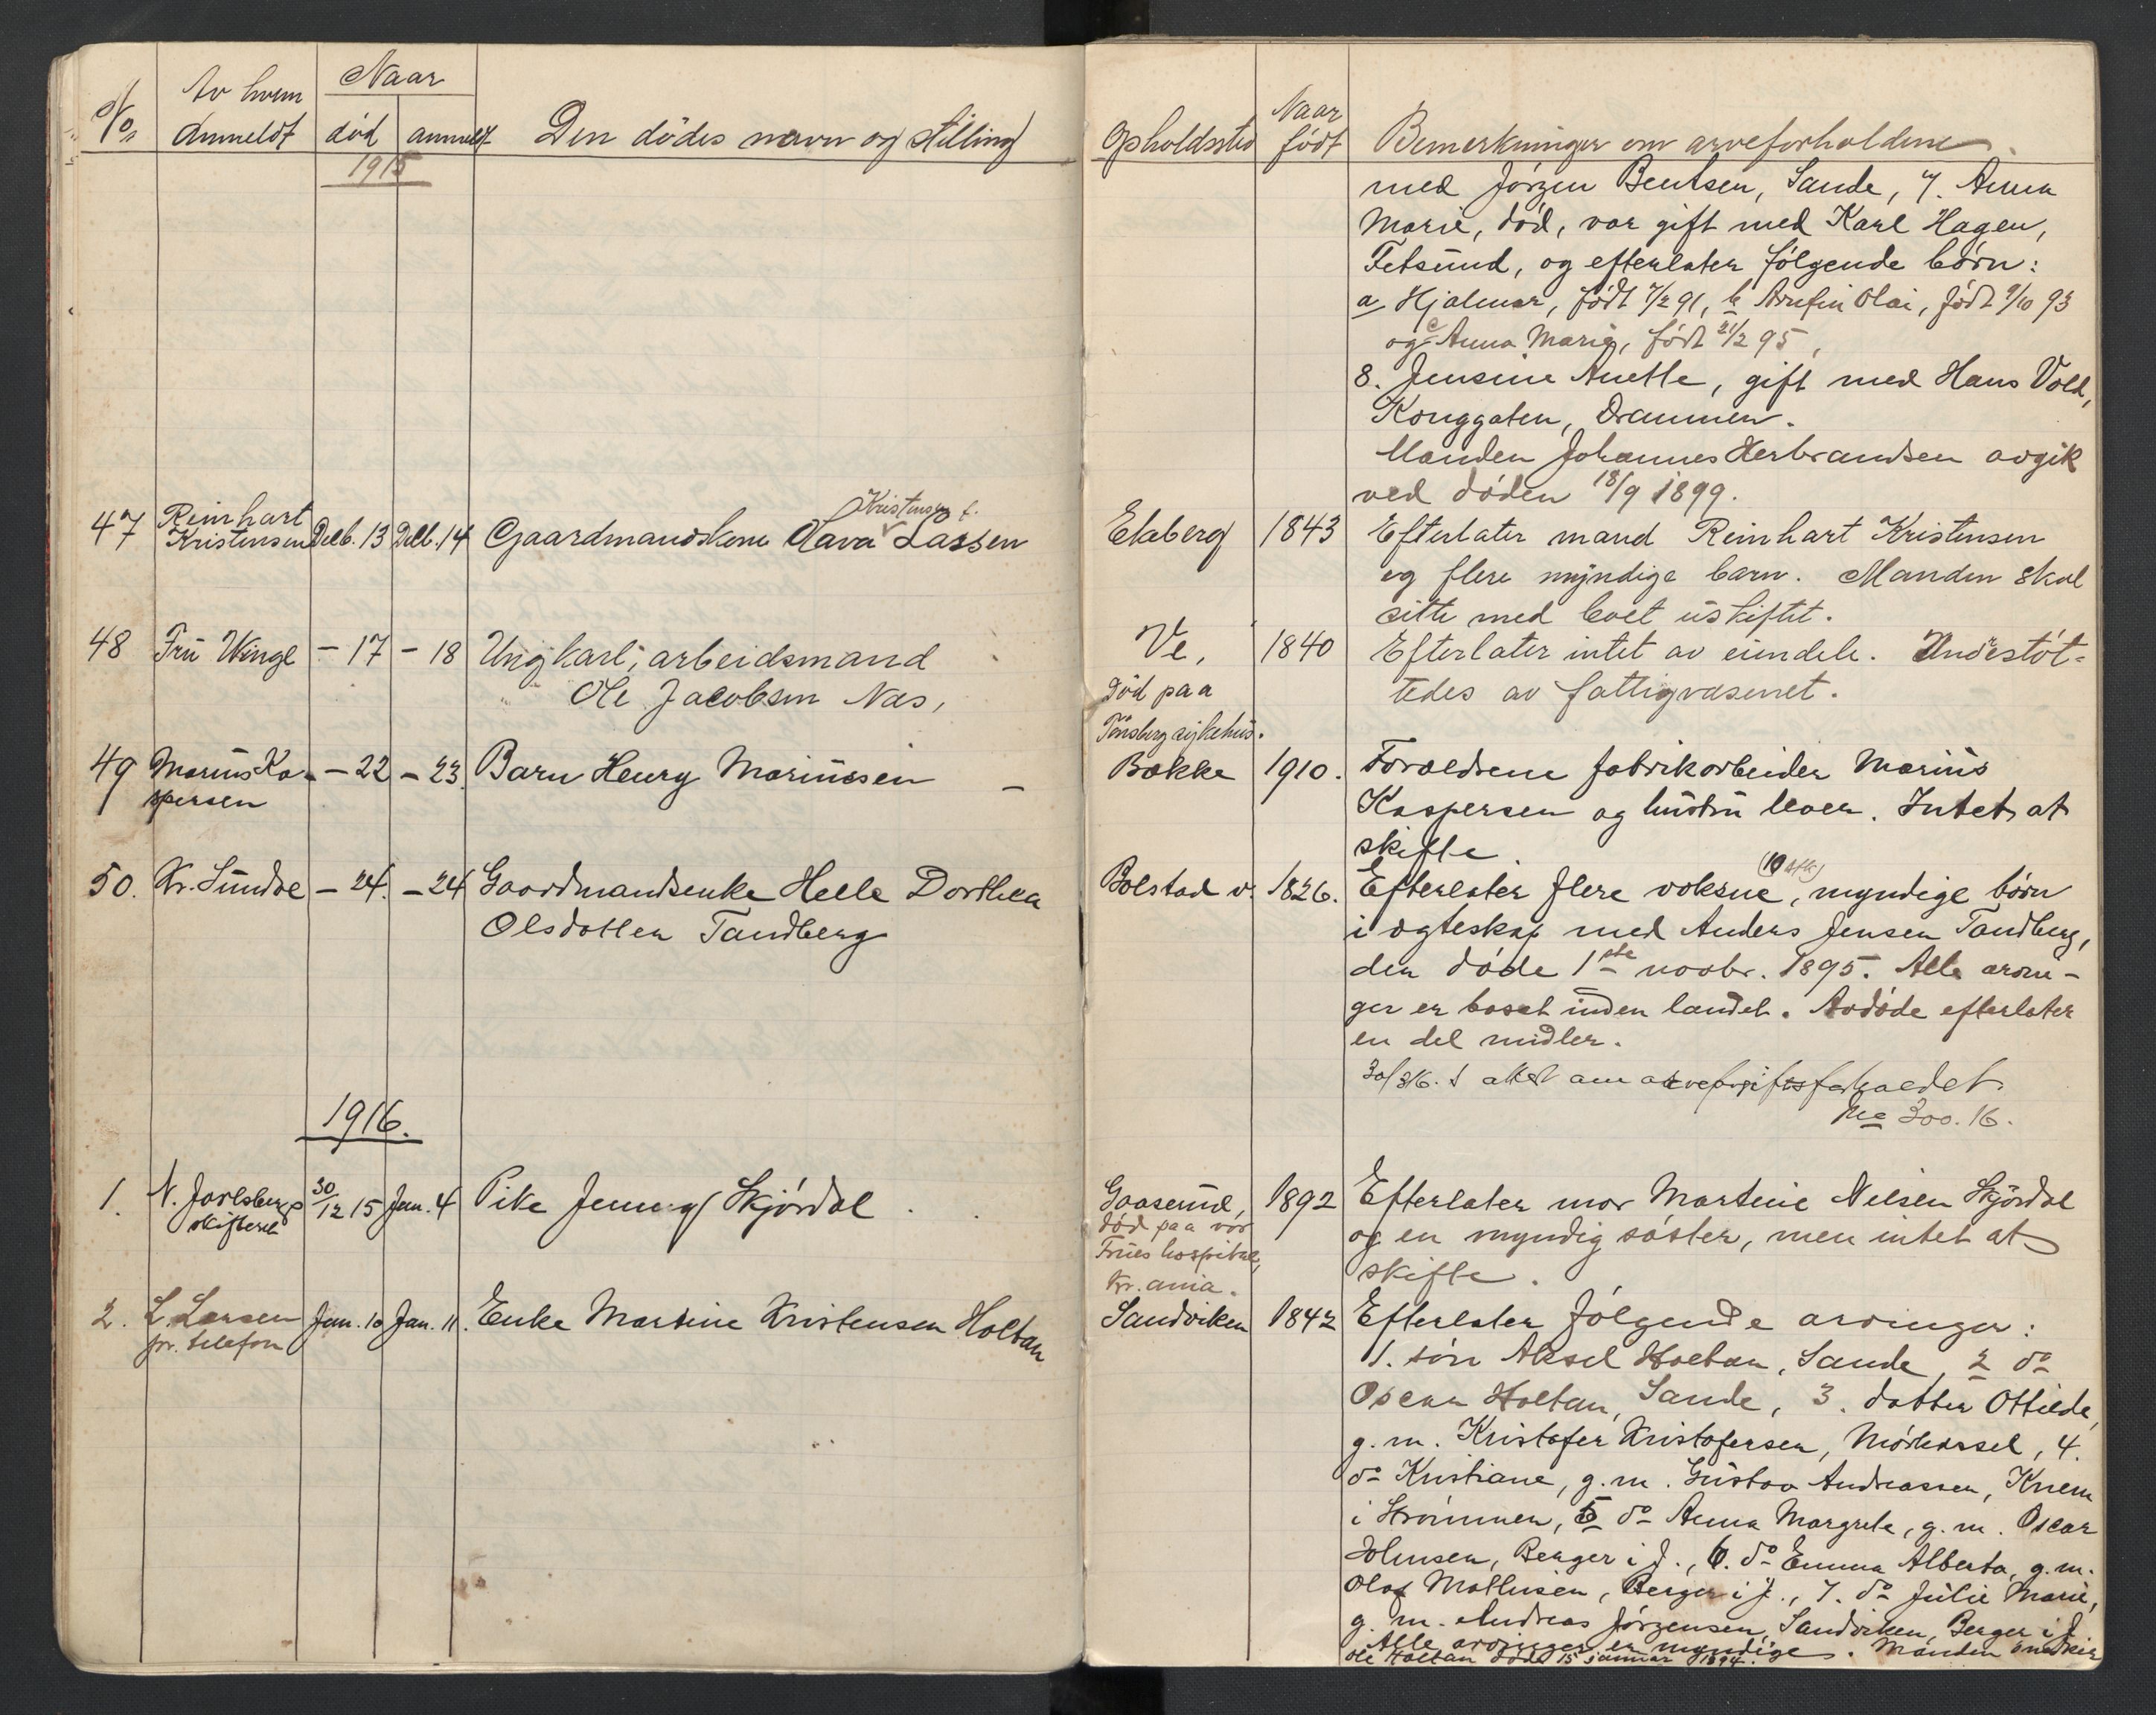 No. Av hvem anmeldt Naar død anmeldt Den dødes navn og stilling
1915
47 Reinhart Kristensen Decb. 13 Decb. 14 Gaardmandskone Olava Kristensen f. Lassen
48 Fru Winge - 17 - 18 Ungkarl, arbeidsmand
Ole Jacobsen Næs,
49 Marius Ka- - 22 - 23. Barn Henry Marinssen
spersen
50. Kr. Sundbe - 24. - 24 Gaardmandsenke Helle Dorthea
Olsdatter Tandberg
1916.
1. N. Jarlsberg skifteret 30/12 15 Jan. 4 Pike Jenny Skjørdal
2. L. Larsen Jan. 10 Jan. 11. Enke Martine Kristensen Holtan
pr. telefon
Opholdssted Naar født Bemerkninger om arveforholdene.
med Jørgen Bentsen, Sande, 7. Anna
Marie, død, var gift med Karl Hagen,
Fetsund, og efterlater følgende børn:
a Hjalmar, født 7/2 91, b Arnfin Olai, født 9/10 93
og c Anna Marie, født 21/2 95,
8. Jensine Anette, gift med Hans Vold,
Konggaten, Drammen.
Manden Johannes Herbrandsen avgik
ved døden 18/9 1899.
Ekeberg 1843 Efterlater mand Reinhart Kristensen
og flere myndige barn. Manden skal
sitte med boet uskiftet.
Ve, 1840 Efterlater intet av eiendele. Understøt-
død paa tedes av fattigvæsenet.
Tønsberg sykehus.
Bække 1910. Forældrene fabrikarbeider Marius
Kaspersen og hustru lever. Intet at
skifte.
Bolstad v. 1826. Efterlater flere voksne, (10 stk) myndige børn
i ægteskap med Anders Jensen Tandberg,
den døde 1ste novbr. 1895. Alle arvin-
ger er bosat inden landet. Avdøde efterlater
en del midler.
30/3 16. attest om arveavgiftsforholdet
No 300. 16.
Gaaserud, 1892 Efterlater mor Martine Nilsen Skjørdal
død paa vor og en myndig søster, men intet at
Frues hospital, skifte.
Kr.ania.
Sandviken 1842 Efterlater følgende arvinger:
1. søn Aksel Holtan, Sande, 2 do
Oscar Holtan, Sande, 3. datter Ottilde,
g. m. Kristofer Kristofersen, Mørkassel, 4.
do Kristiane, g. m. Gustav Andreassen, Knem
i Strømmen, 5 do Anna Margrete, g. m. Oscar
Johnsen, Berger i J., 6. do Emma Alberta, g. m.
Olaf Mathisen, Berger i J., 7. do Julie Marie,
g. m. Andreas Jørgensen, Sandviken, Berger i J.
Alle arvinger er myndige. Manden
Ole Holtan døde 15 januar 1894.